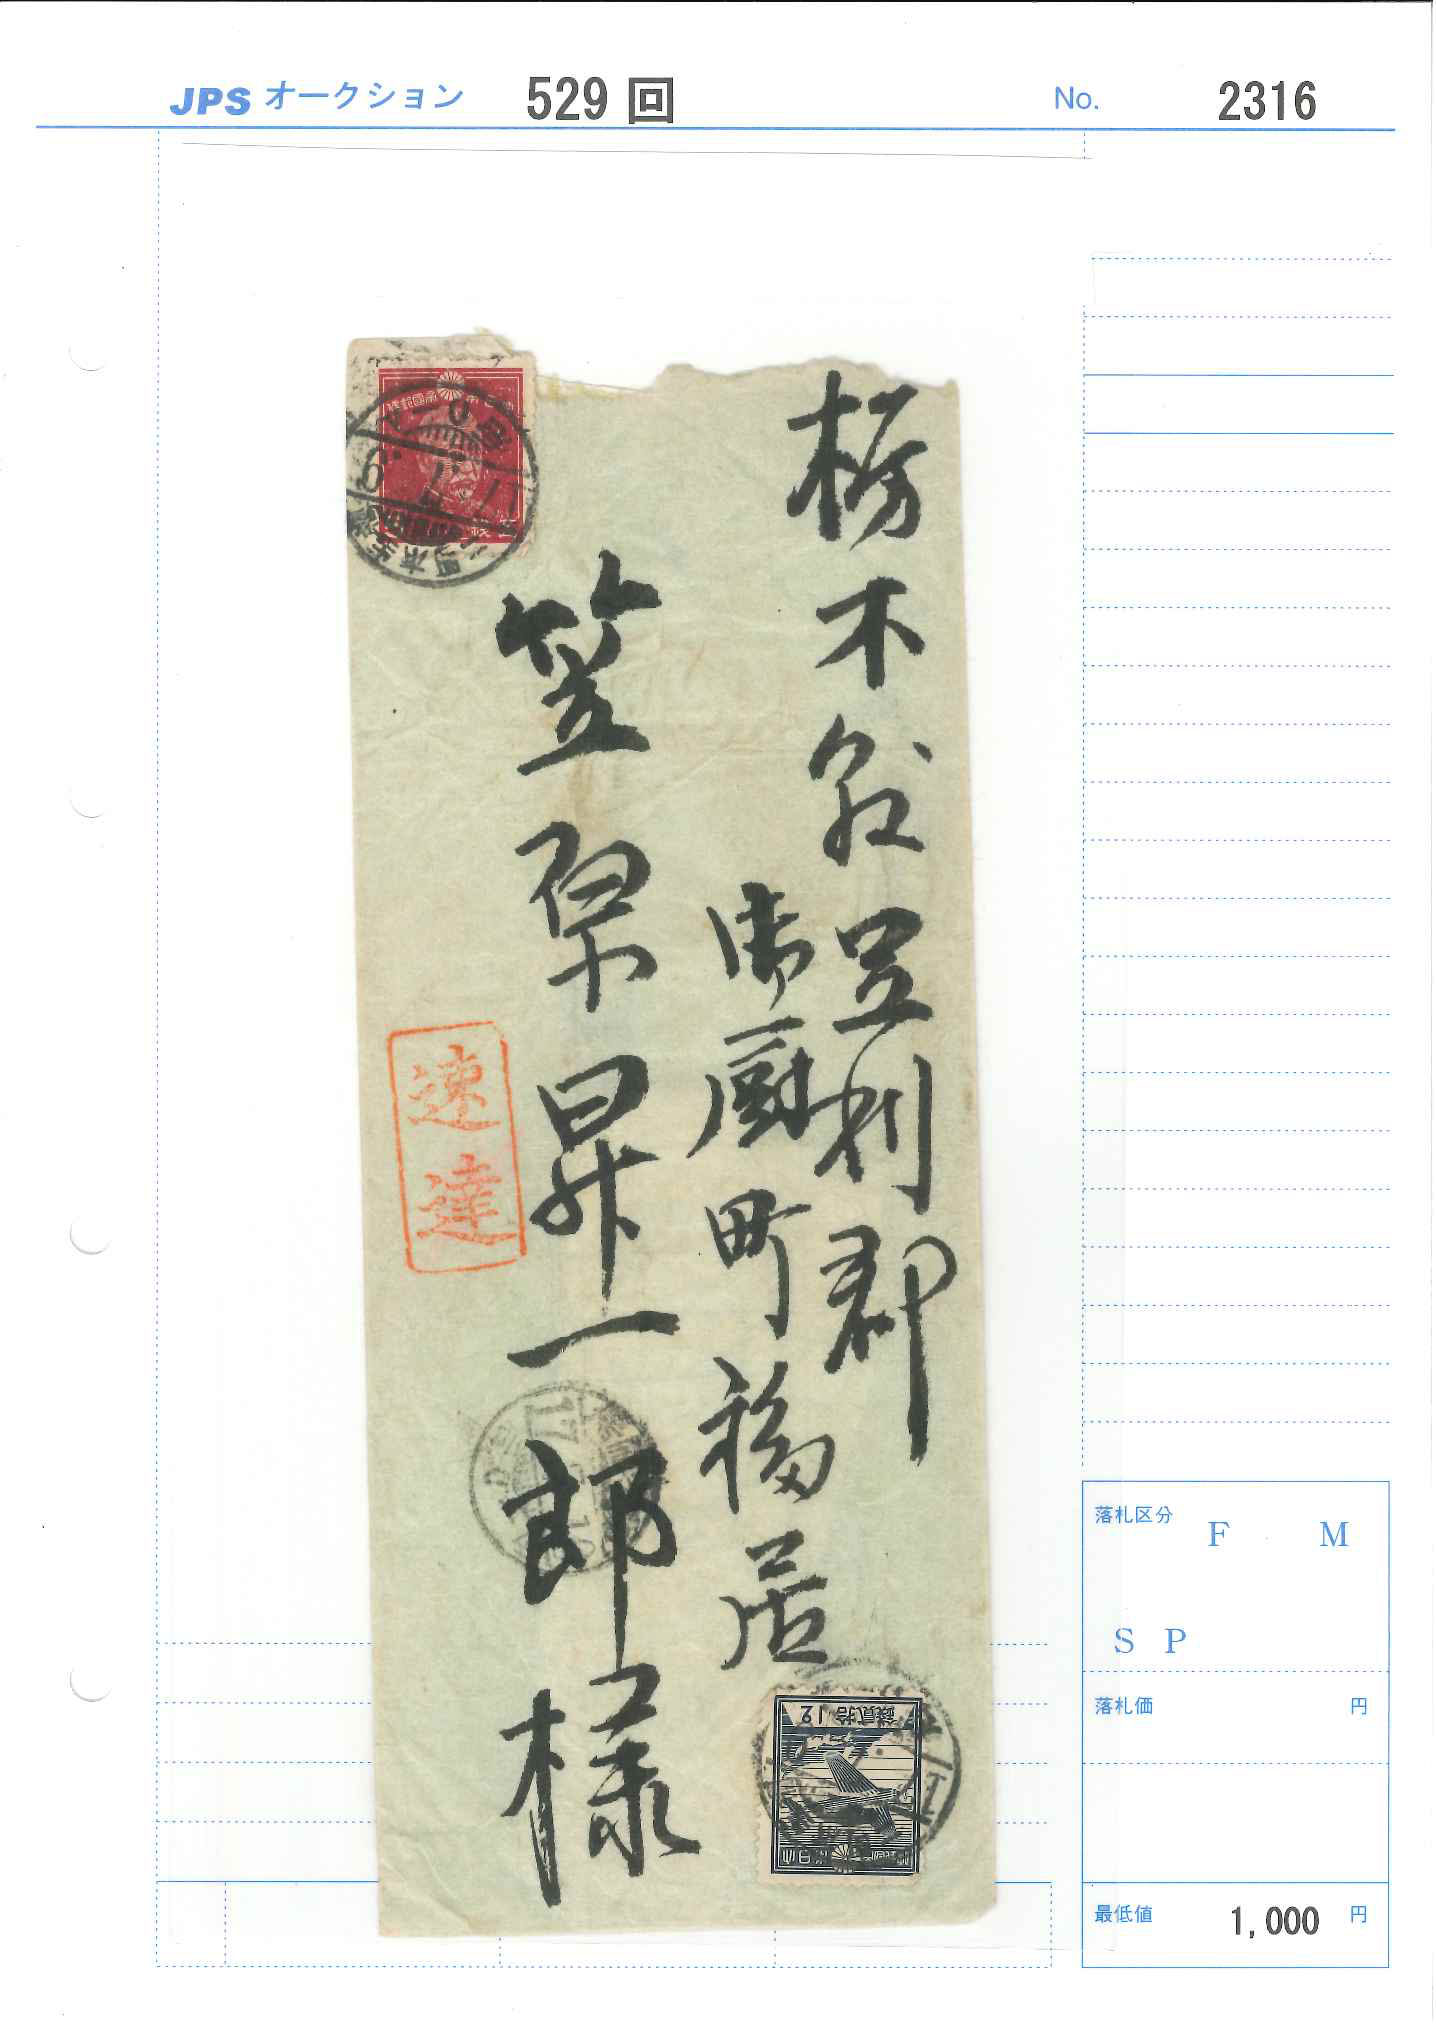 JPS オークション 529 回 No. 2316
栃木県足利郡
御厨町福居
笠原昇一郎様
速達
12 銭貳拾
17
落札区分 F M
S P
落札価 円
最低値 1,000 円